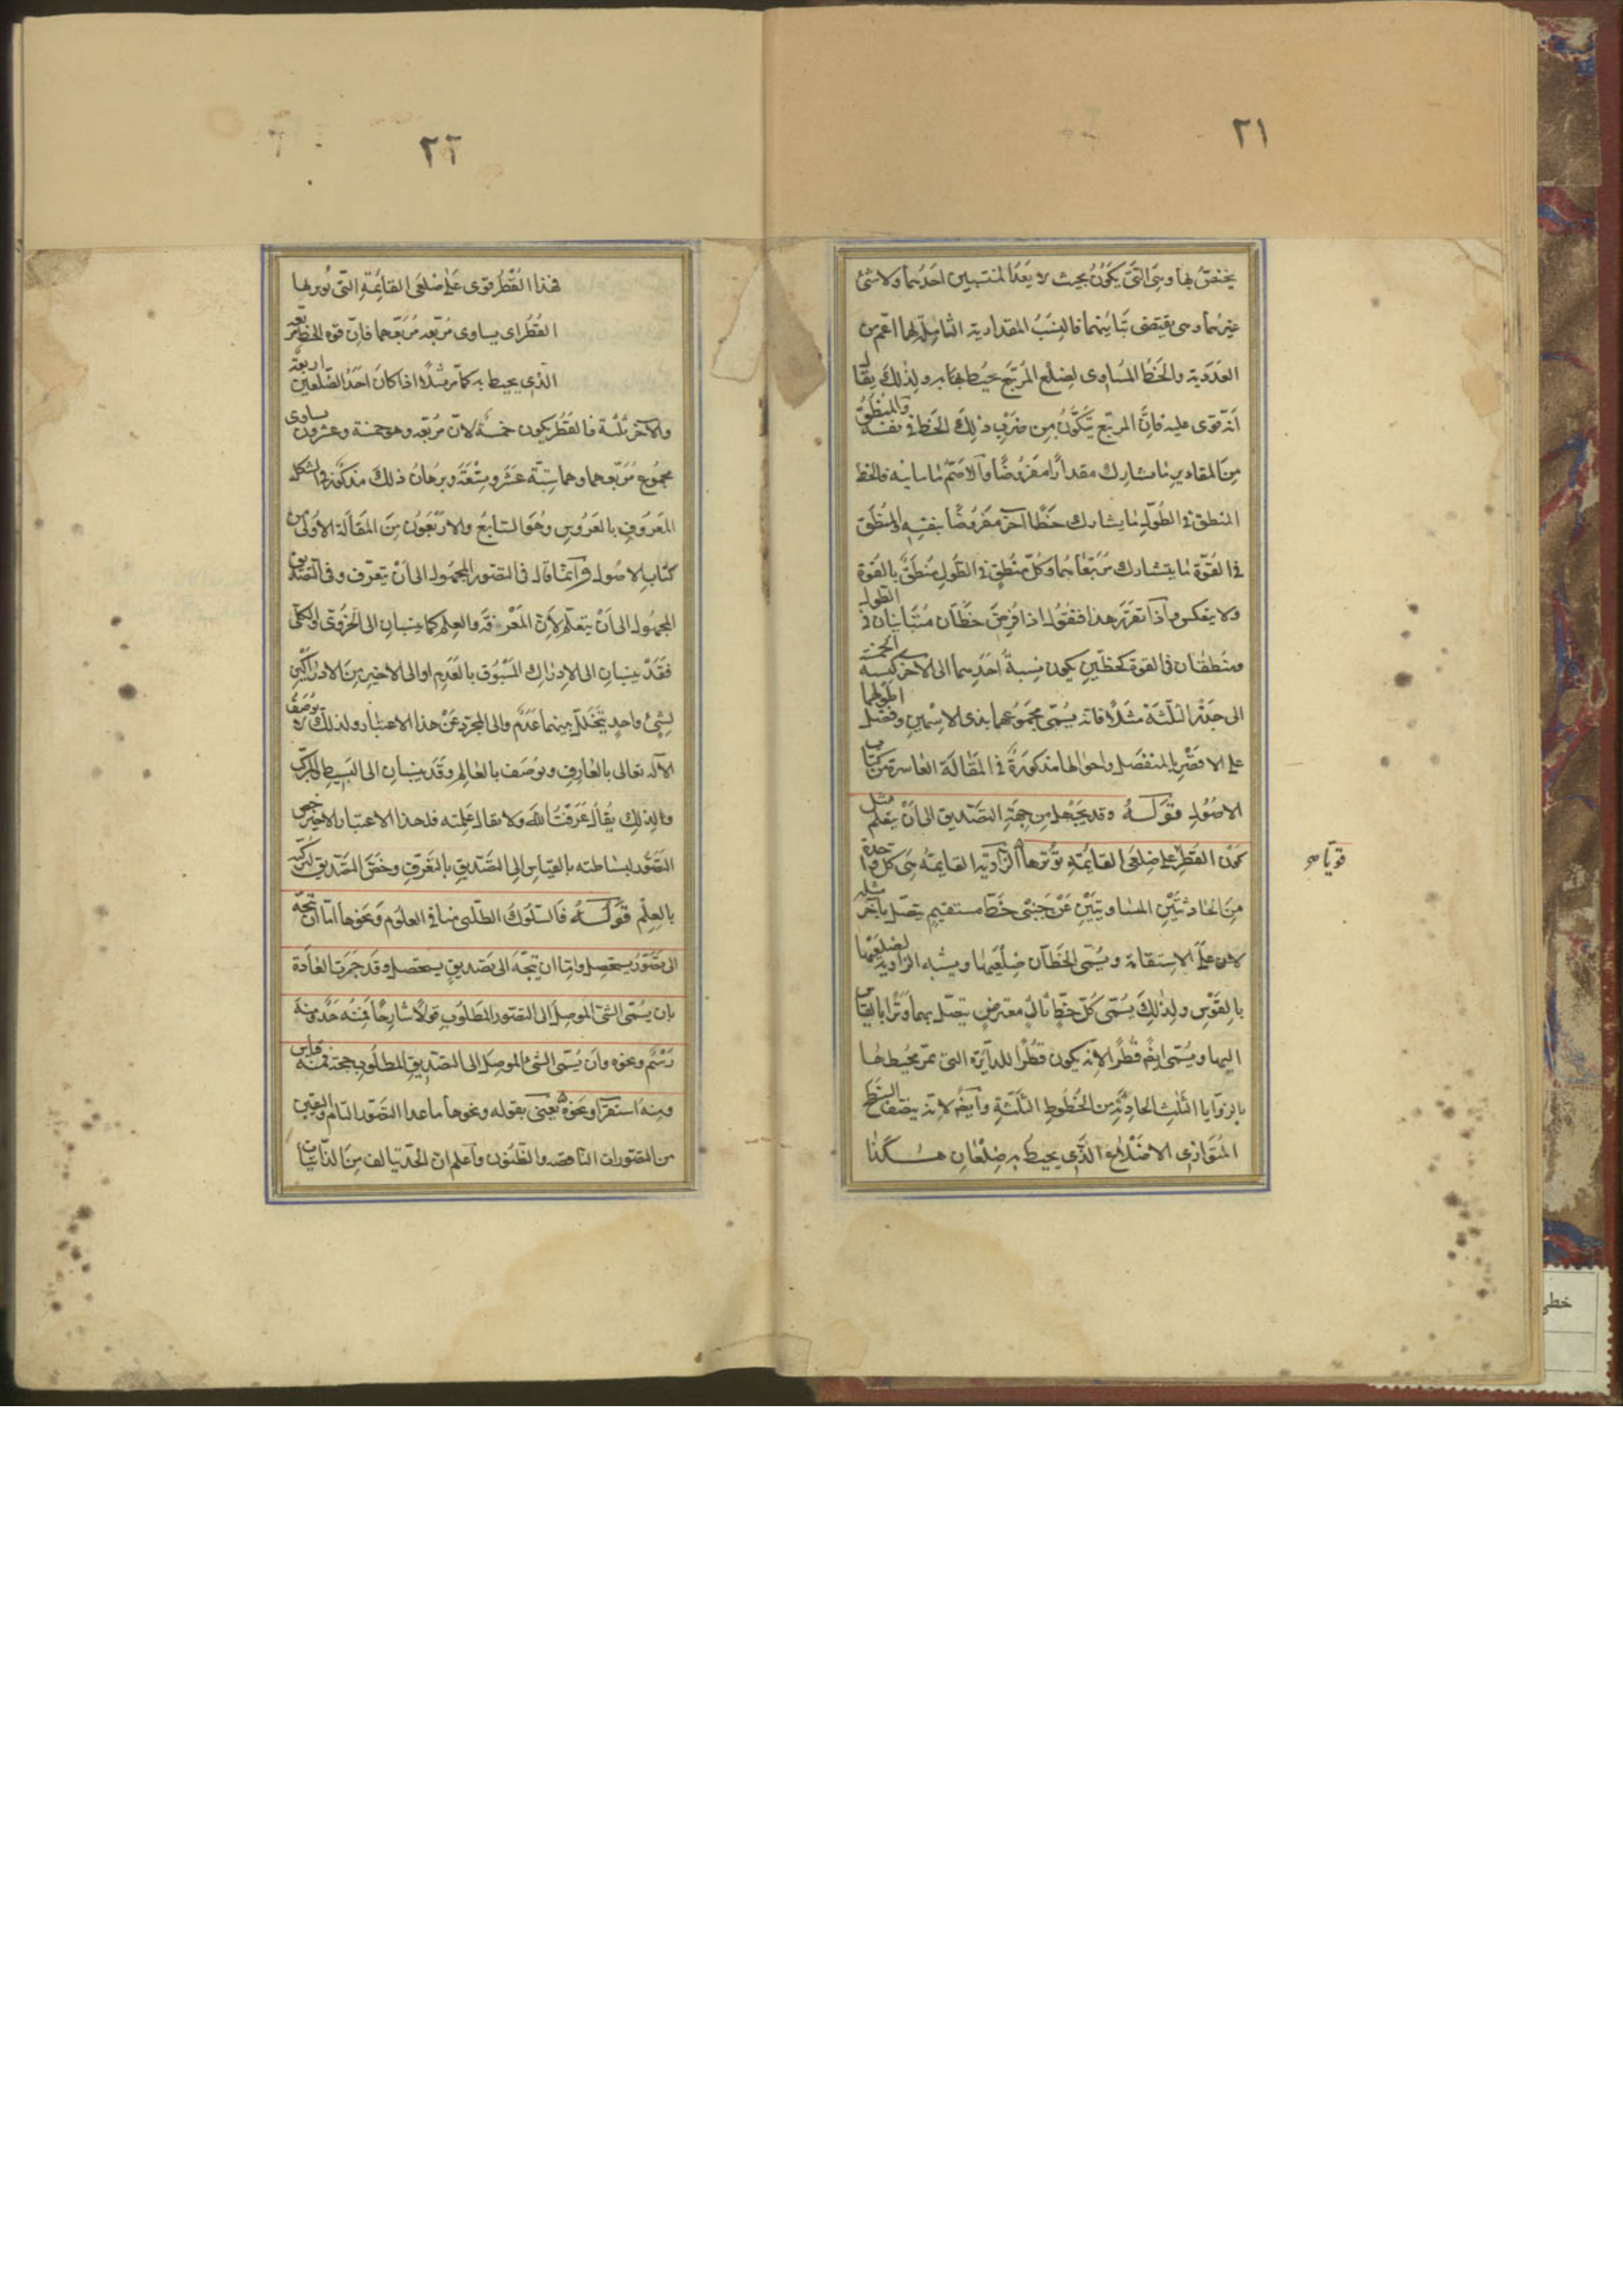 ٢١
يختصّ بها وهي التي يكون بحيث لا يعدّ المنتسبين احدهما ولا شئ
غيرهما وهي يقتضى تباينهما فالنسب المقدارية الشاملة لها اعم من
العددية والخط المساوى لضلع المربّع يحيط بها به ولذلك يقال
انّه قوى عليه فانّ المربّع يتكوّن من ضرب ذلك الخط في نفسه والمنطق
من المقادير ما يشارك مقدارا مفروضا والاصمّ ما يباينه فالخط
المنطق في الطول ما يشارك خطّا آخر مفروضا بنفسه والمنطق
في القوّة ما يتشارك مربّعاهما وكلّ منطق في الطول منطق بالقوّة
ولا ينعكس واذا تقرّر هذا فنقول اذا فرض خطّان متباينان في الطول
ومنطقان في القوة كخطّين يكون نسبة احدهما الى الآخر كنسبة الخمسة
الى جذر الثلثة مثلا فانه يسمّى مجموعهما بذى الاسمين وفضل اطولهما
على الاقصر بالمنفصل واحوالها مذكورة في المقالة العاشرة من كتاب
الاصول قوله وقد يجهل من جهة التصديق الى ان يتعلم مثل
كون القطر على ضلعى القائمة يوترها الزاوية القايمة هي كل واحدة
قويّا
من الحادثتين المتساويتين عن جنبتى خطّ مستقيم يتصل بآخر مثله
لا على الاستقامة ويسمّى الخطّان ضلعيها ويشبه الزاوية لضلعيها
بالقوس ولذلك يسمّى كلّ خطّ ثالث معترض يتصل بهما وترا بالقياس
اليها ويسمّى ايضا قطرا لانّه يكون قطرا للدايرة التى تمر بمحيطها
بالزوايا الثلث الحادثة من الخطوط الثلثة وايضا لانّه ينصف السطح
المتوازى الاضلاع الذى يحيط به ضلعان هكذا
٢٢
فهذا القطر قوى على ضلعى القائمة التى يوترها
القطر اى يساوى مربّعه مربّعهما فانّ قوة الخط مربعه
الذى يحيط به كما مرّ مثلا اذا كان احد الضلعين اربعة
والآخر ثلثة فالقطر يكون خمسة لانّ مربّعه وهو خمسة وعشرون يساوى
مجموع مربّعهما وهما ستّة عشر وتسعة وبرهان ذلك مذكور في الشكل
المعروف بالعروس وهو السابع والاربعون من المقالة الاولى من
كتاب الاصول وانّما قال في التصور المجهول الى ان يتعرّف وفى التصديق
المجهول الى ان يتعلّم لانّ المعرفة والعلم كما ينسبان الى الجزوى والكلى
فقد ينسبان الى الادراك المسبوق بالعدم او الى الاخير من الادراكين
لشئ واحد يتخلّل بينهما عدم والى المجرّد عن هذا الاعتبار ولذلك لا يوصف
الاله تعالى بالعارف ويوصف بالعالم وقد ينسبان الى البسيط والمركب
ولذلك يقال عرفت الله ولا يقال علمته فلهذا الاعتبار الاخير خص
التصوّر لبساطته بالقياس الى التصديق بالتعرّف وخصّ التصديق لتركّبه
بالعلم قوله فالسّلوك الطلبى منا في العلوم ونحوها امّا ان يتّجه
الى تصوّر يستحصل وامّا ان يتّجه الى تصديق يستحصل وقد جرت العادة
بان يسمّى الشئ الموصل الى التصور المطلوب قولا شارحا فمنه حدّ ومنه
رسم ونحوه وان يسمّى الشئ الموصل الى التصديق المطلوب حجة فمنه قياس
ومنه استقرا ونحوه يعنى بقوله ونحوها ما عدا التصوّر التام واليقين
من التصورات الناقصه والظنون واعلم ان الحدّ يتالف من الذاتيات